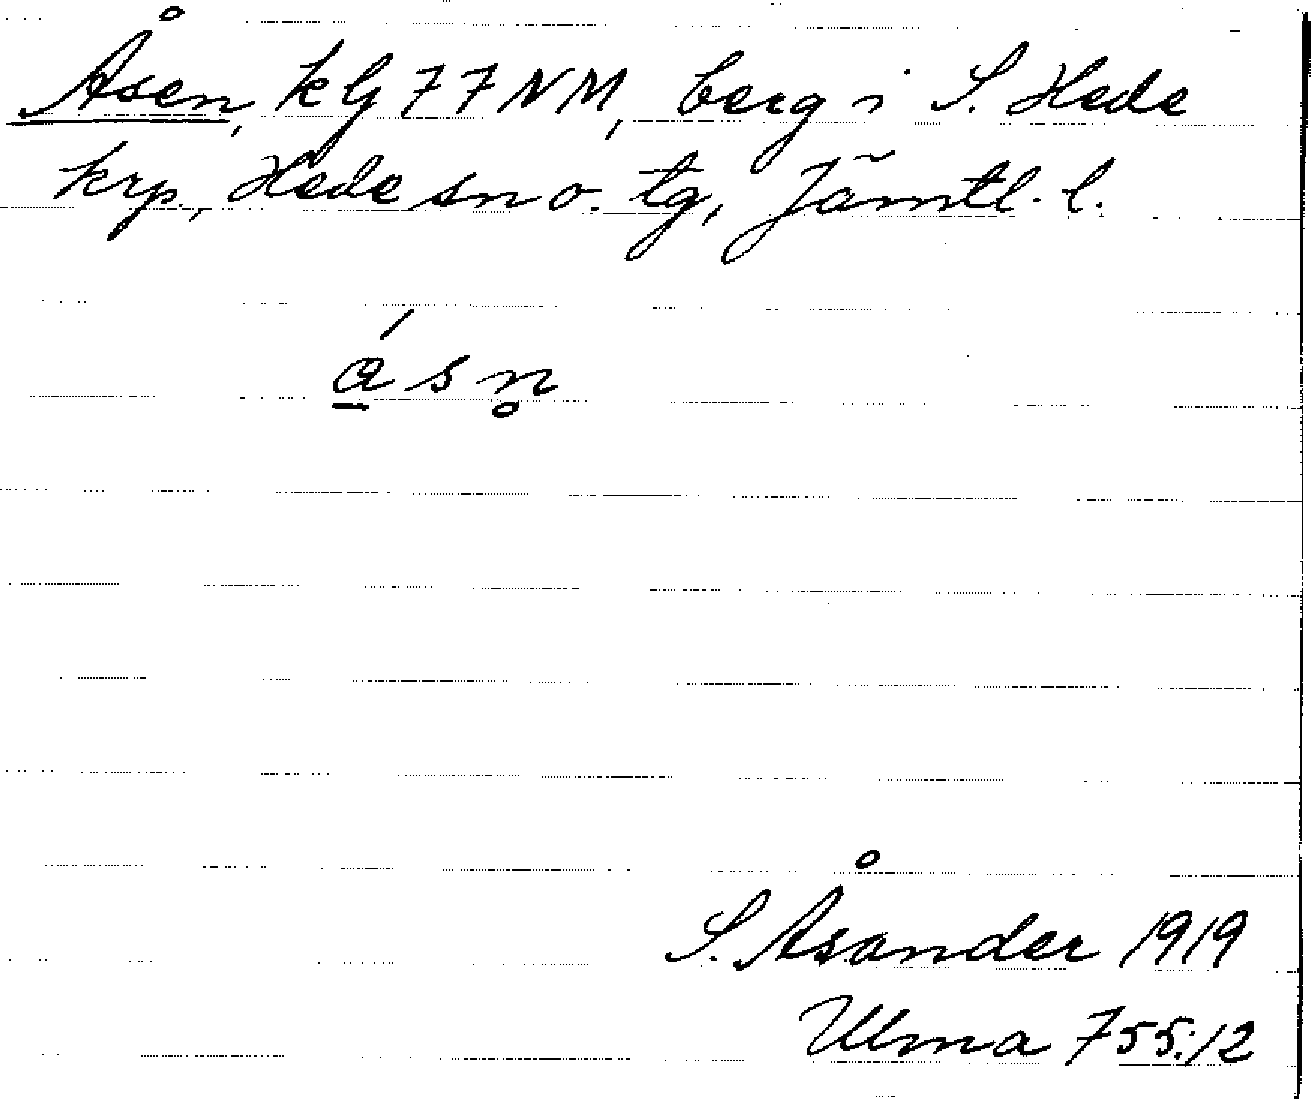 Åsen, kG 77 NM, berg i S. Hede
krp, Hede sn o. tg, Jämtl. l.
a̱´sn̥
S. Åsander 1919
Ulma 755:12